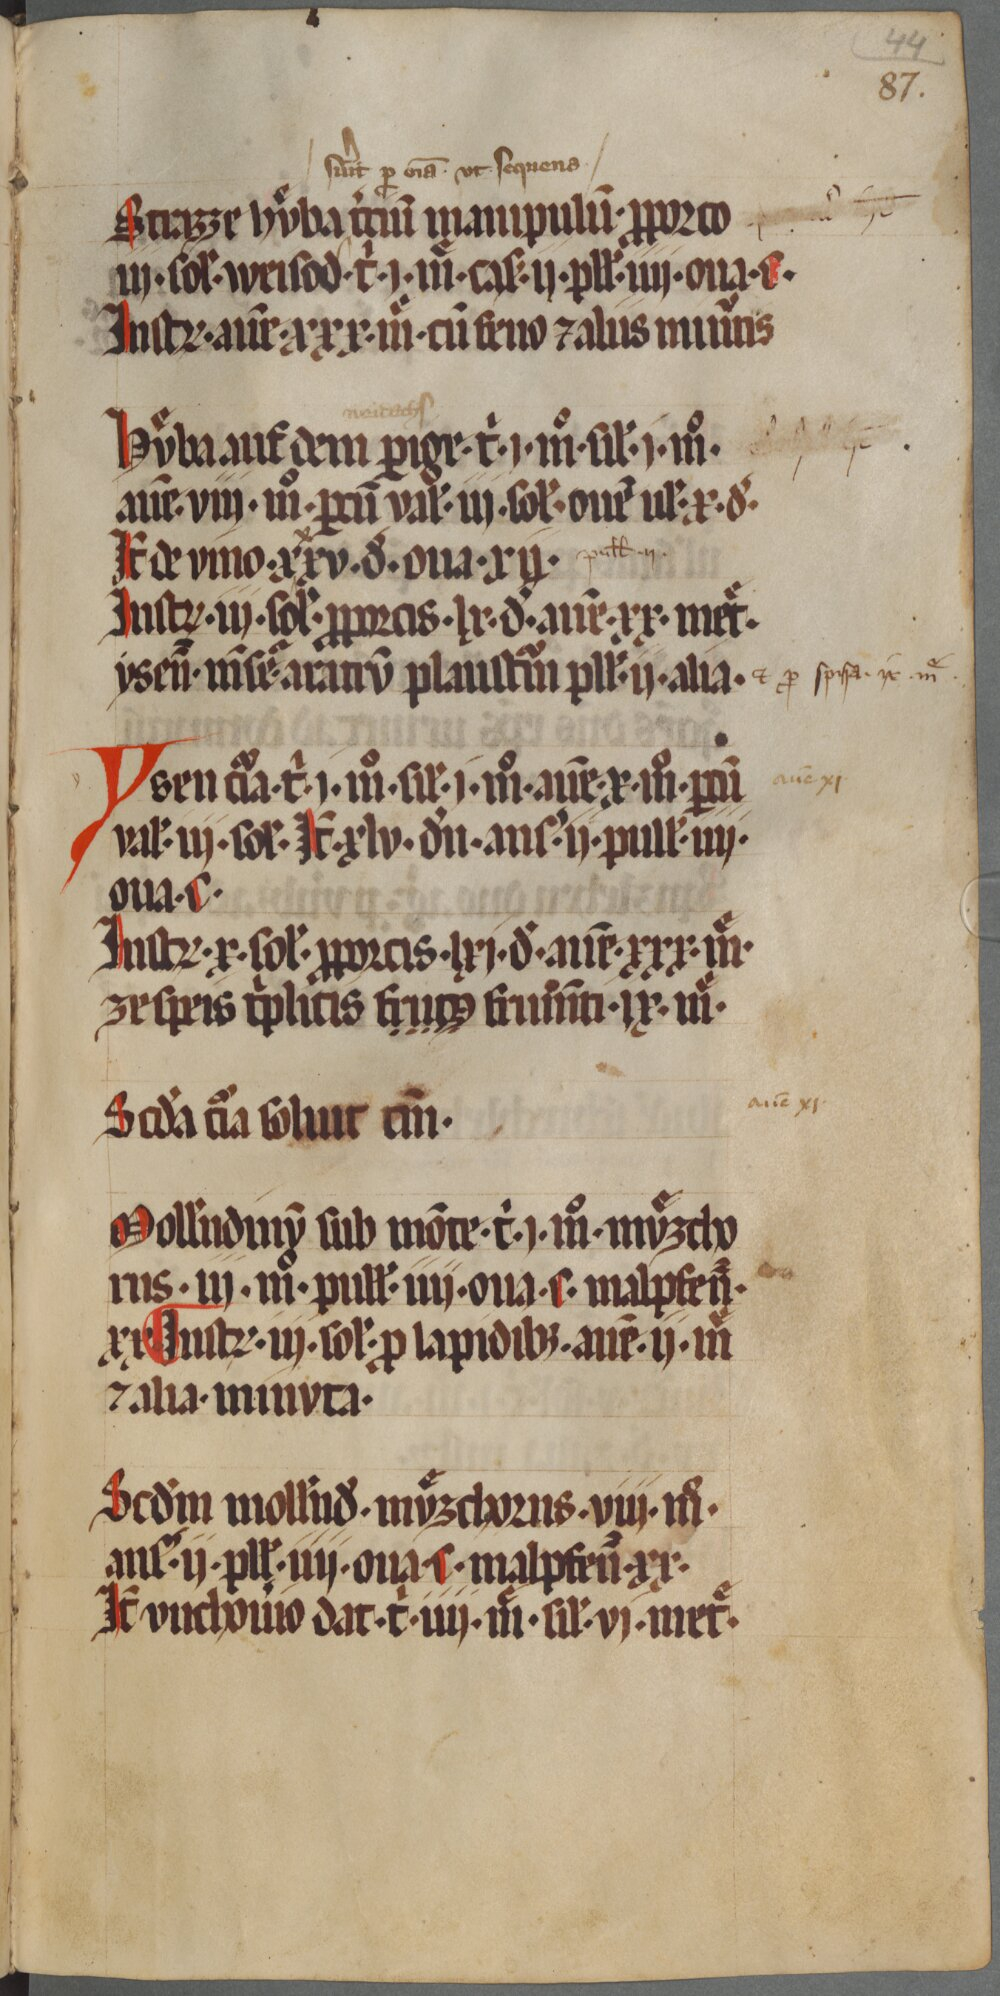 44
87.
sunt p oīa ut sequens
Strazze hv̊ba t̓ciū manipulū · p porco
iij · sol̕ · weisod · t̓ · j · m̊ · cas̕ · ij · pll̕ · iiij · oua · c ·
Instr̕ · auē · xxx · m̊ · cū feno ⁊ aliis minutis
neitechs
Hv̊ba auf dem p̱ige · t̓ · j · m̊ · sil̕ · j · m̊ ·
auē · viij · m̊ · porcū val̕ · iij · sol̕ · ouē ul̕ · x · d̕ ·
It̄ de vino · xxxv · d̕ · oua · xij · pull̕ · ij ·
Instr̕ · iij · sol̕ · p porcis · lx · d̕ · auē · xx · met̄ ·
ysen̄ · mēse · aratrū plaustrū pll̕ · ij · alia · ⁊ p spisa · ix · m̊ ·
Ysen cīa · t̓ · j · m̊ · sil̕ · j · m̊ · auē · x · m̊ · porcū auē xj
val̕ · iij · sol̕ · It̄ · xlv · dn̄ · ans̕ · ij · pull̕ · iiij ·
oua · c ·
Instr̕ · x · sol̕ · p porcis · lxj · d̕ · auē · xxx · m̊ ·
ze speis t̓plicis frugꝫ frumēti · ix · m̊ ·
Scd̕a cīa soluit tm̄ · auē xj ·
Moln̄dinū sub mōte · t̓ · j · m̊ · mv̊zcho
rns · iij · m̊ · pull̕ · iiij · oua · c · malpfen̄ ·
xx Instr̕ · iij · sol̕ · p lapidibꝫ · auē · ij · m̊
⁊ alia · minvta ·
Scd̕m moln̄d̕ · mv̊zchorns · viij · m̊ ·
ans̕ · ij · pll̕ · iiij · oua · c · malpfen̄ · xx ·
It̄ vnchouio dat · t̓ · iiij · m̊ · sil̕ · vj · met̄ ·